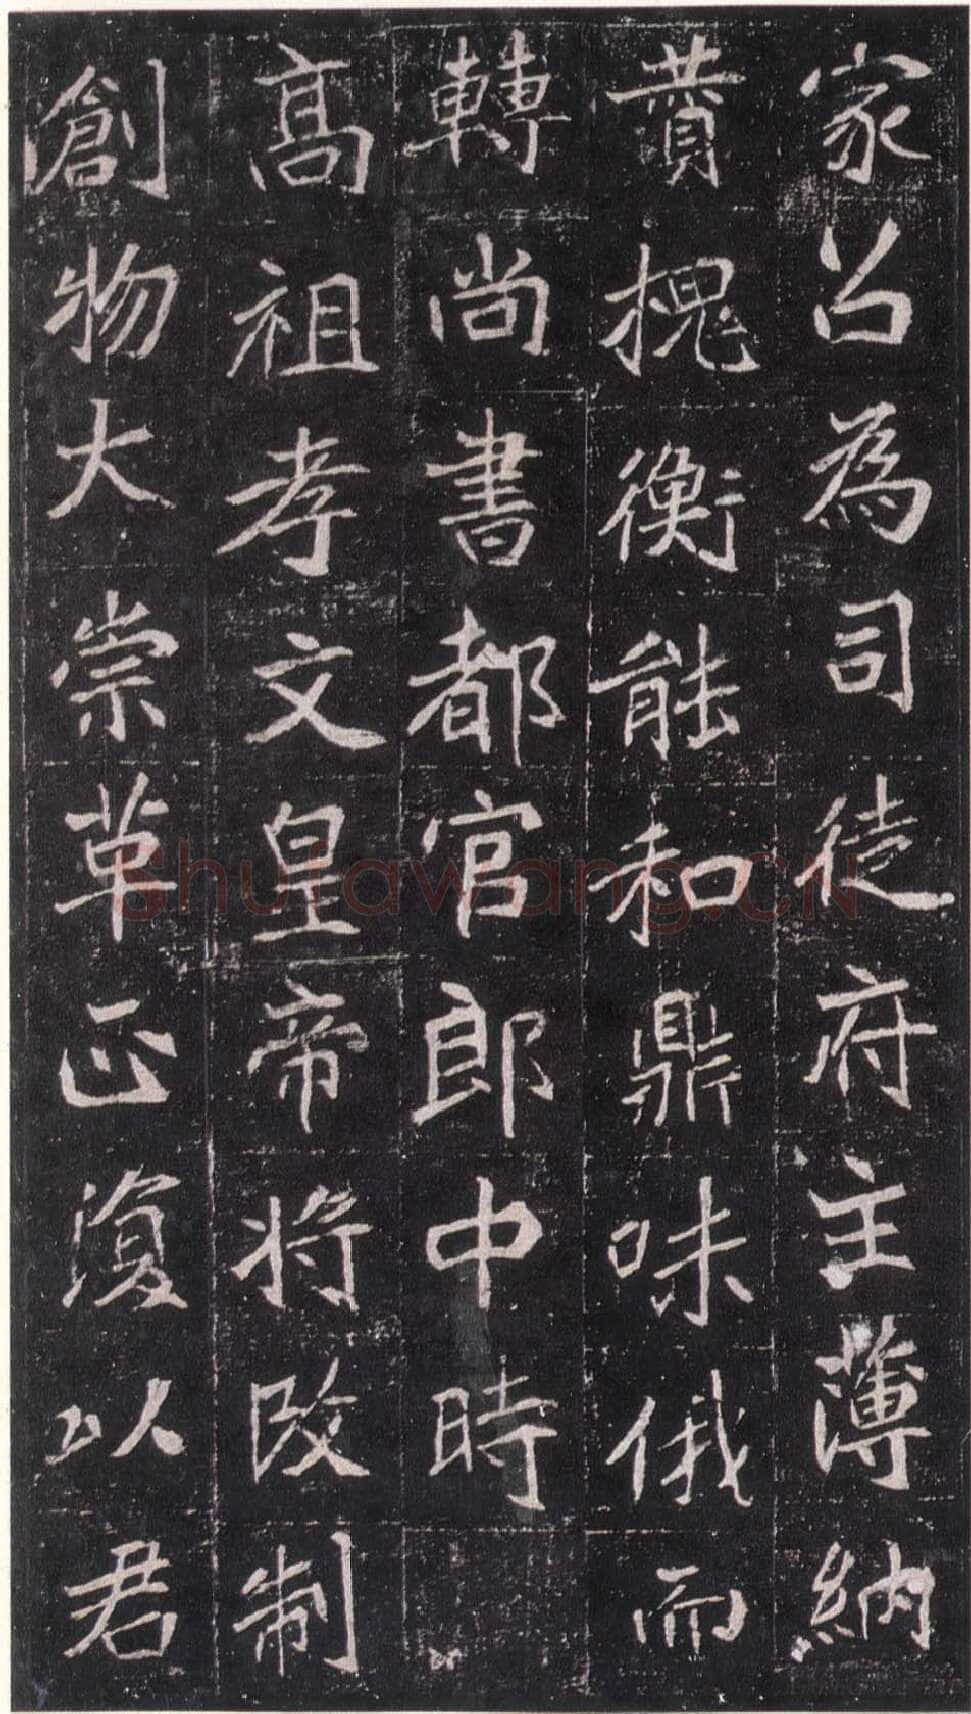 家召為司徒府主薄納
蕡槐衡能和鼎味俄而
轉尚書都官郎中時
高祖孝文皇帝將改制
創物大崇革正復以君
Shufawang.CN